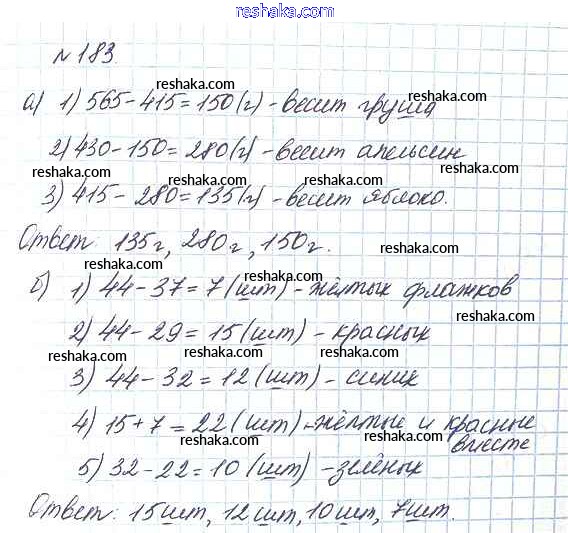 reshaka.com
№ 183.
reshaka.com
а) 1) 565 - 415 = 150 (г) - весит груша
reshaka.com
reshaka.com
2) 430 - 150 = 280 (г) - весит апельсин
reshaka.com reshaka.com reshaka.com
3) 415 - 280 = 135 (г) - весит яблоко.
reshaka.com
Ответ: 135 г, 280 г, 150 г.
reshaka.com
reshaka.com reshaka.com
б) 1) 44 - 37 = 7 (шт) - жёлтых флажков
reshaka.com
2) 44 - 29 = 15 (шт) - красных
reshaka.com reshaka.com reshaka.com
3) 44 - 32 = 12 (шт) - синих
reshaka.com
4) 15 + 7 = 22 (шт) - жёлтые и красные
вместе
reshaka.com
reshaka.com reshaka.com
5) 32 - 22 = 10 (шт) - зелёных
reshaka.com
Ответ: 15 шт, 12 шт, 10 шт, 7 шт.
reshaka.com reshaka.com